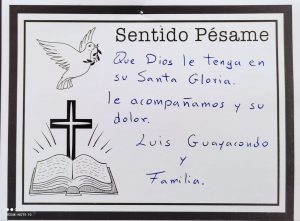 Sentido Pésame
Que Dios le tenga en
su Santa Gloria.
le acompañamos y su
dolor.
Luis Guayacondo
y
Familia.